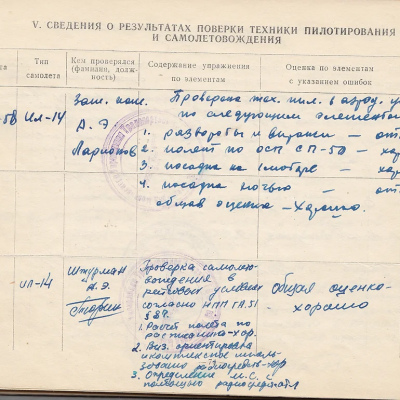 V. СВЕДЕНИЯ О РЕЗУЛЬТАТАХ ПОВЕРКИ ТЕХНИКИ ПИЛОТИРОВАНИЯ
И САМОЛЕТОВОЖДЕНИЯ
Тип
самолета
Кем проверялся
(фамилия, долж-
ность)
Содержание упражнения
по элементам
Оценка по элементам
с указанием ошибок
58 Ил-14
Зам. ком.
А.Э.
Ларионов
Проверена тех. пил. в аэрод. у
по следующим элементам
1. развороты и виражи — от
2. полёт по ОСП СП-50 — хо
3. посадка на 1 моторе — хор
4. посадка ночью — от
общая оценка — хорошо.
ил-14
Штурман
А.Э.
Проверка самолю-
вождения в
условиях
согласно НПП ГА 51
§ 87.
1. Расчёт полёта по
хор.
2. Виз. ориентировка
и комплексное исполь-
зование хор
3. Определение М.С. с
помощью
общая оценка-
хорошо